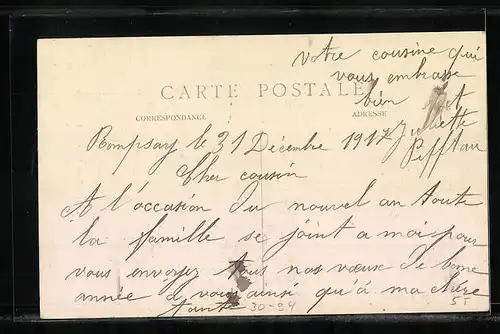 votre cousine qui
vous embrasse
bien
CARTE POSTALE
CORRESPONDANCE
ADRESSE
Juliette
Rompsay le 31 Décembre 1917
Cher cousin
A l'occasion du nouvel an toute
la famille se joint a moi pour
vous envoyez tous nos vœux de bonne
année a vous ainsi qu'à ma chère
tante
30-94